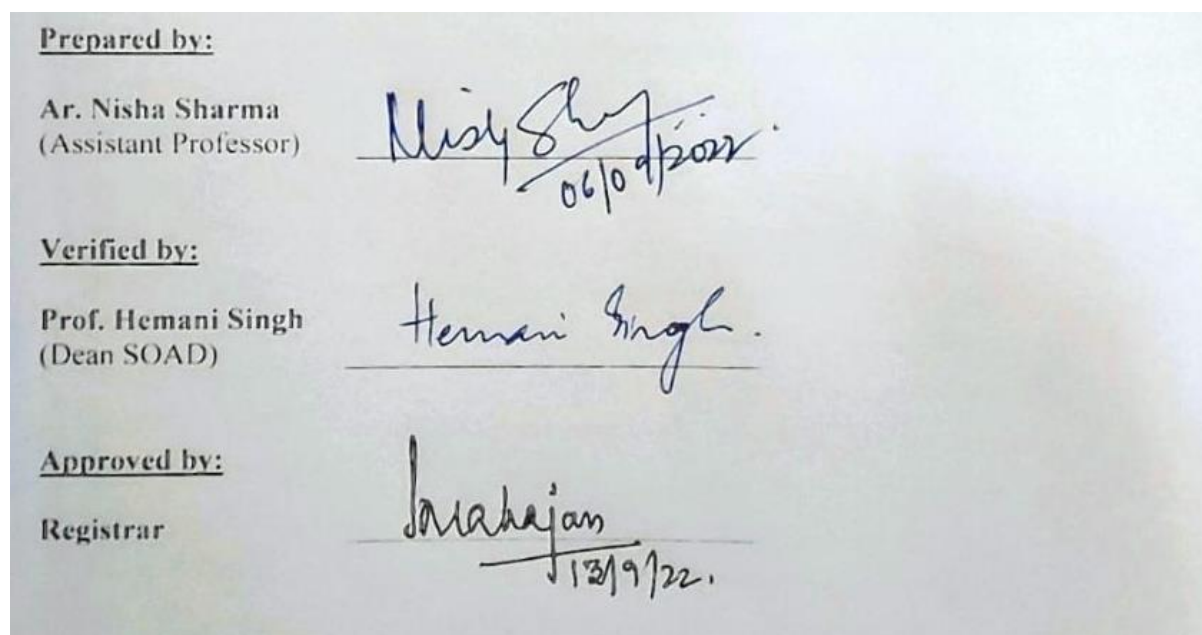 Prepared by:
Ar. Nisha Sharma
(Assistant Professor)
06/09/2022
Verified by:
Prof. Hemani Singh
(Dean SOAD)
Hemani Singh.
Approved by:
Registrar
13/9/22.